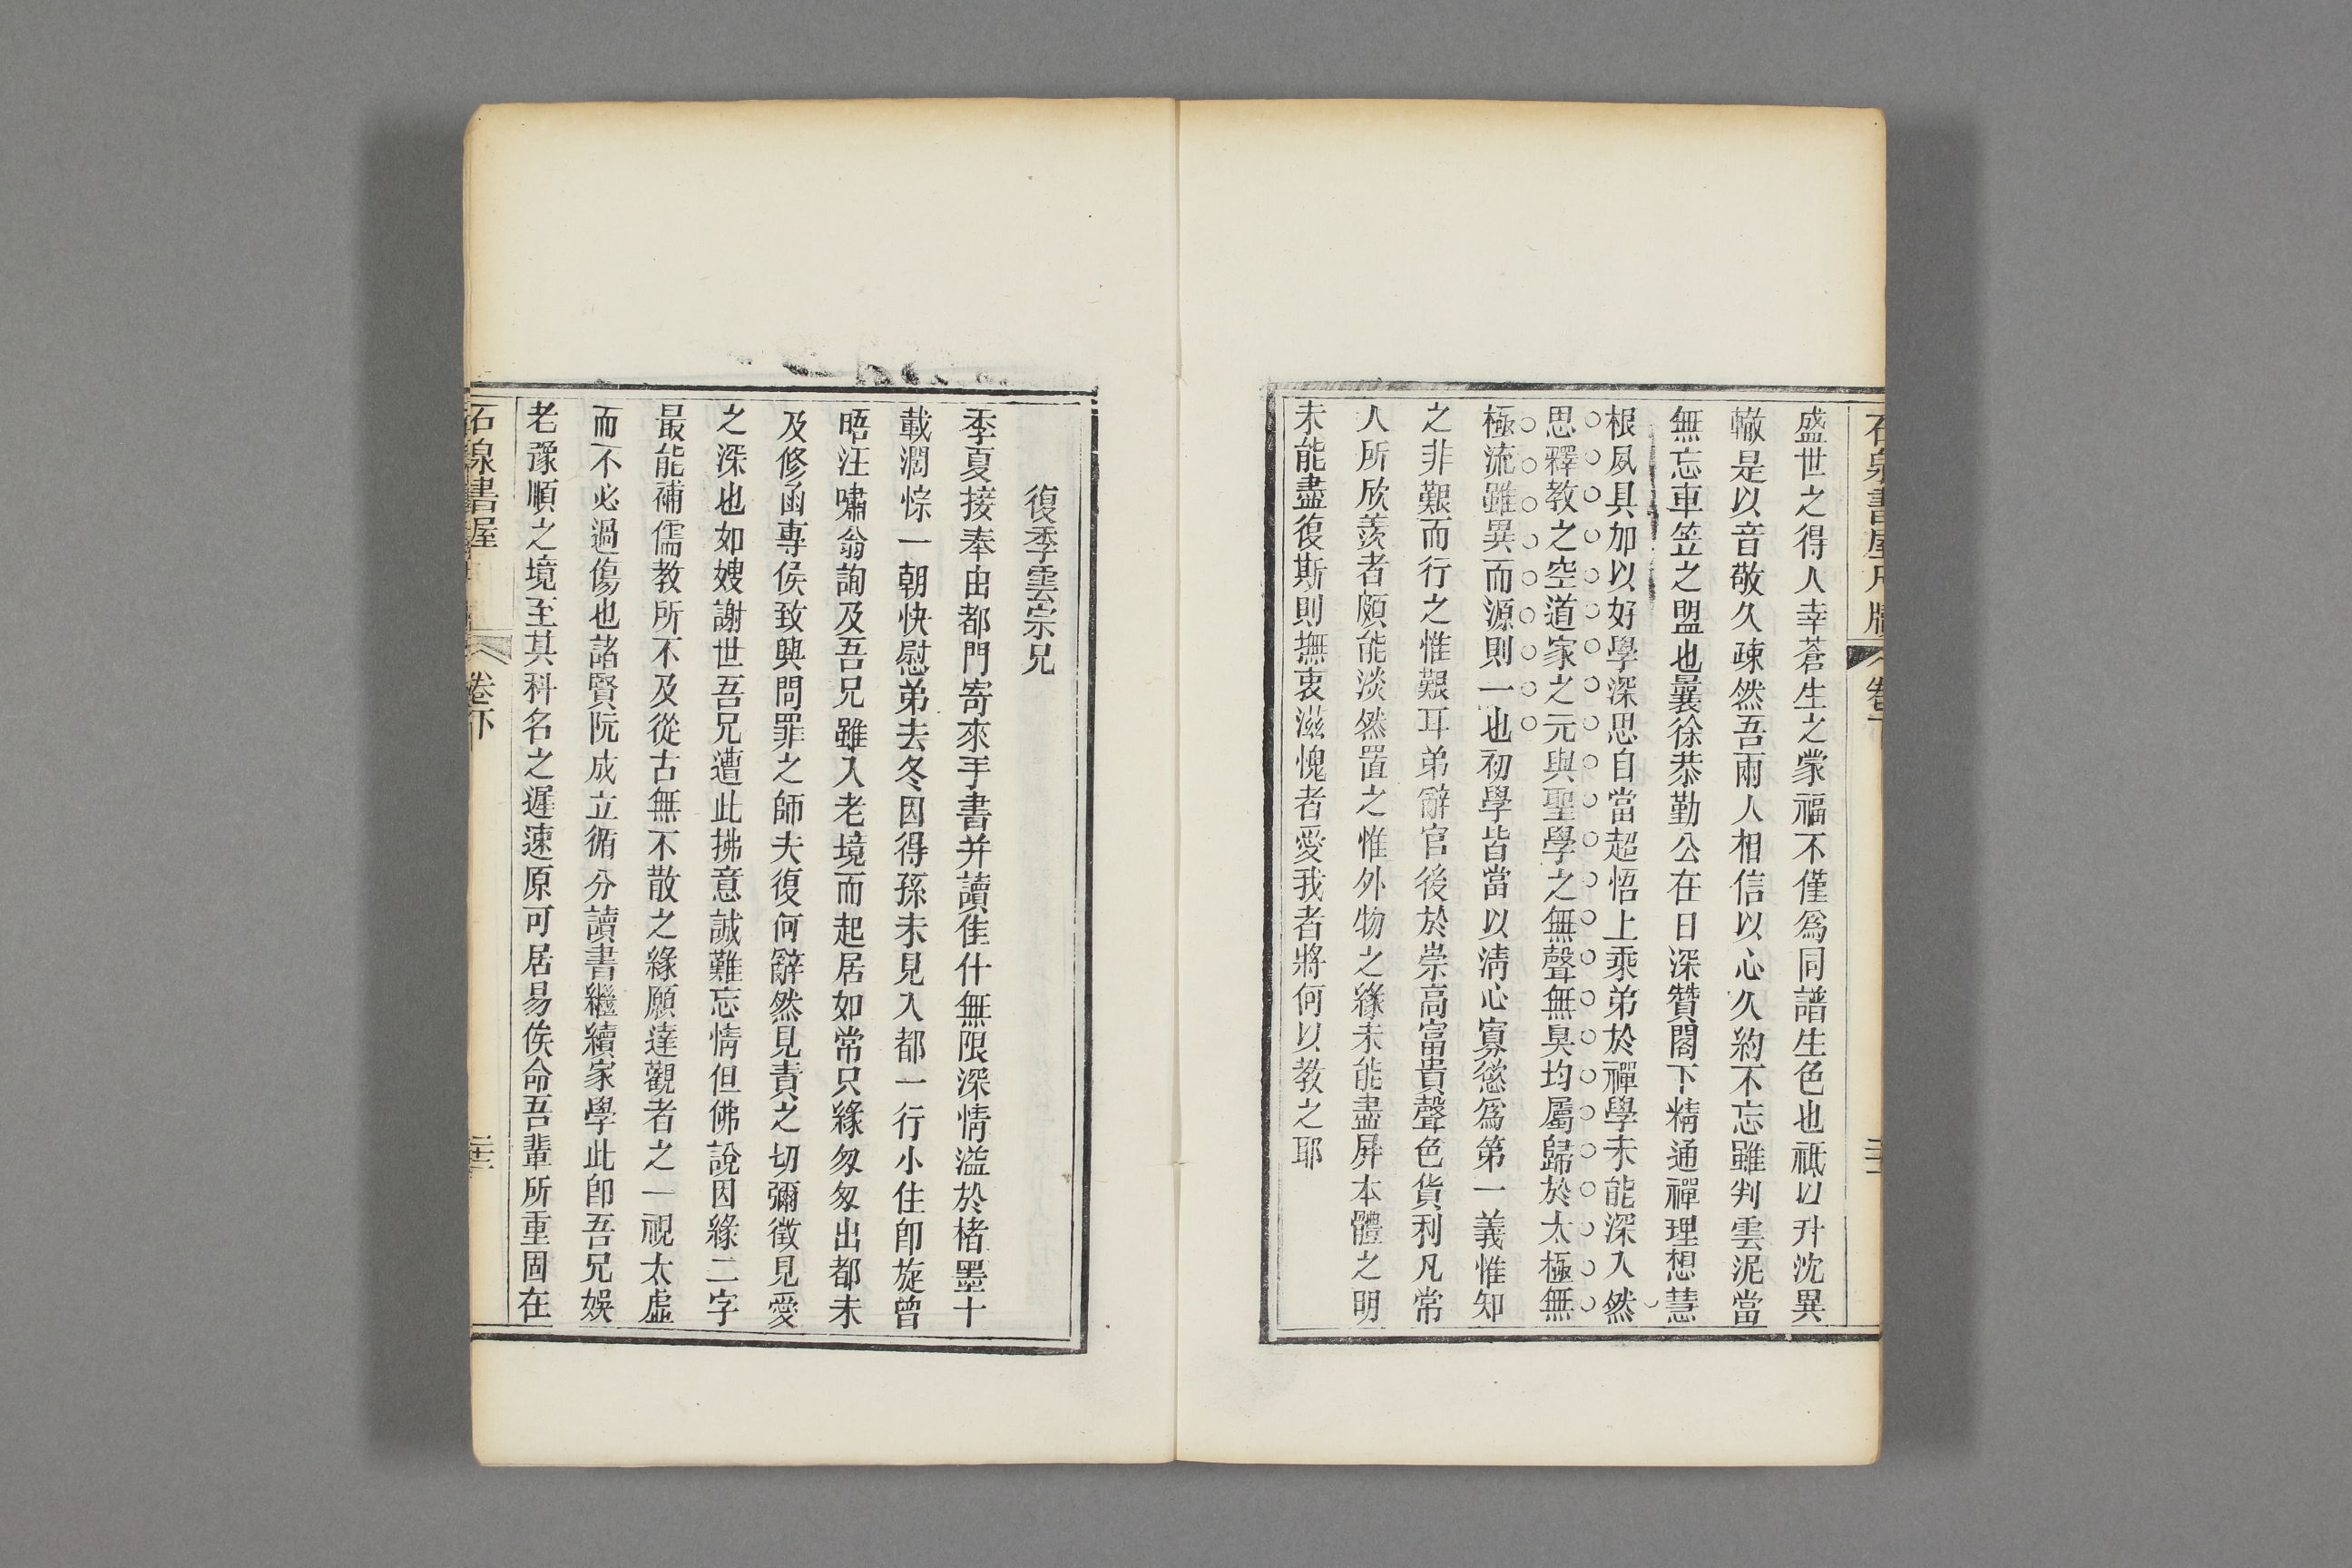 盛世之得人幸蒼生之蒙福不僅爲同譜生色也祗以升沈異
轍是以音敬久疎然吾兩人相信以心久約不忘雖判雲泥當
無忘車笠之盟也曩徐恭勤公在日深贊閣下精通禪理想慧
根夙具加以好學深思自當超悟上乘弟於禪學未能深入然
思釋教之空道家之元與聖學之無聲無臭均屬歸於太極無
極流雖異而源則一也初學皆當以淸心寡慾爲第一義惟知
之非艱而行之惟艱耳弟辭官後於崇高富貴聲色貨利凡常
人所欣羨者頗能淡然置之惟外物之緣未能盡屏本體之明
未能盡復斯則撫衷滋愧者愛我者將何以教之耶
復季雲宗兄
季夏接奉由都門寄來手書并讀佳什無限深情溢於楮墨十
載濶悰一朝快慰弟去冬因得孫未見入都一行小住卽旋曾
晤汪嘯翁詢及吾兄雖入老境而起居如常只緣匆匆出都未
及修函專侯致興問罪之師夫復何辭然見責之切彌徵見愛
之深也如嫂謝世吾兄遭此拂意誠難忘情但佛說因緣二字
最能補儒教所不及從古無不散之緣願達觀者之一視太虛
而不必過傷也諸賢阮成立循分讀書繼續家學此卽吾兄娛
老豫順之境至其科名之遲速原可居易俟命吾輩所重固在
石泉書屋
卷下